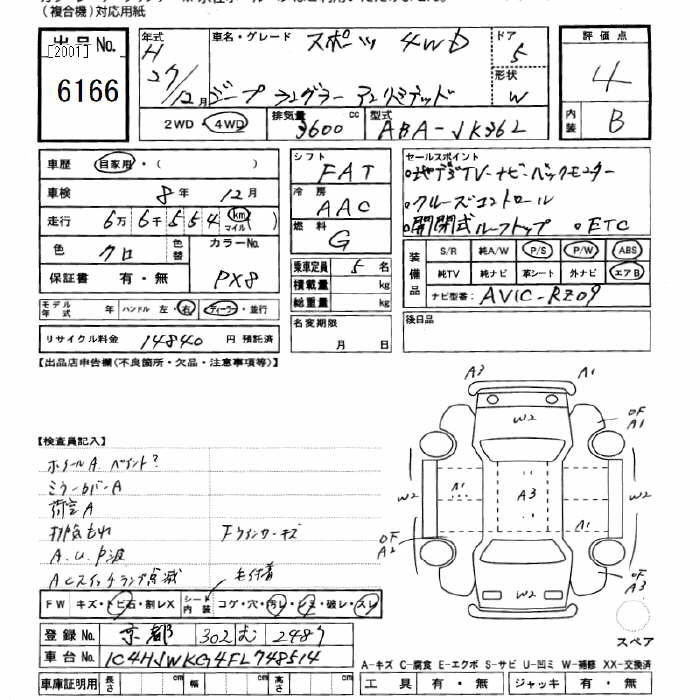 (複合機)対応用紙
出品No.
[2001]
6166
年式 H 27/12月
車名・グレード スポーツ 4WD
ジープ ラングラー アンリミテッド
ドア 5
形状 W
2WD・4WD
排気量 3600 cc
型式 ABA-JK36L
評価点 4
内装 B
車歴 自家用・( )
車検 8年 12月
走行 6万 6千 5 5 4 (km マイル)
色 クロ 色替 カラーNo. PX8
保証書 有・無
モデル年式 年 ハンドル 左・右 ディーラー・並行
リサイクル料金 14840 円 預託済
シフト FAT
冷房 AAC
燃料 G
乗車定員 5 名
積載量 kg
総重量 kg
名変期限 月 日
セールスポイント
・地デジTV・ナビ・バックモニター
・クルーズコントロール
・開閉式ルーフトップ ・ETC
装備品 S/R 純A/W P/S P/W ABS
純TV 純ナビ 革シート 外ナビ エアB
ナビ型番: AVIC-RZ09
後日品
【出品店申告欄(不良箇所・欠品・注意事項等)】
【検査員記入】
ホイールA ペイント?
ミラーカバーA
荷室A
排気もれ Fウインサーキズ
A.U.P波
ACスイッチランプ点滅 毛付着
FW キズ・トビ石・割レX シート内装 コゲ・穴・汚レ・シミ・破レ・スレ
登録No. 京都 302 む 2487
車台No. 1C4HJWKG4FL748514
車庫証明用 長さ cm 幅 cm 高さ cm
A3 A1
W2
OF A1
W2 A1 A3 W2
A1
OF A2
W2
OF A3
スペア
A-キズ C-腐食 E-エクボ S-サビ U-凹ミ W-補修 XX-交換済
工具 有・無 ジャッキ 有・無